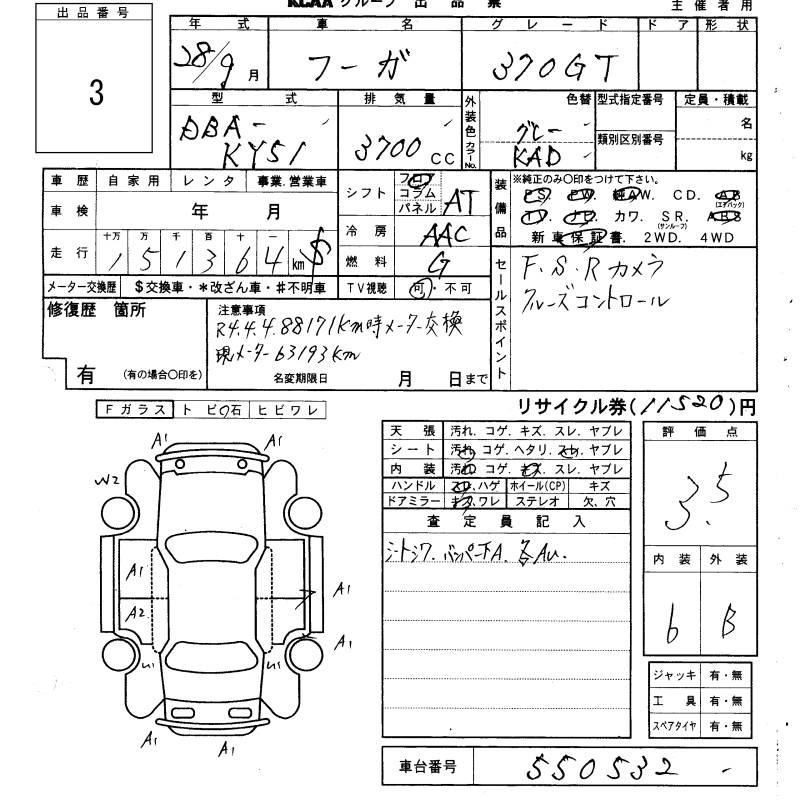 KCAA グループ 出品票
主催者用
出品番号
3
年式 車名 グレード ドア 形状
28/9月 フーガ 370GT
型式 排気量 外装色 カラーNo. 色替 型式指定番号 定員・積載
DBA-KY51 3700cc グレー KAD 類別区別番号 名 kg
車歴 自家用 レンタ 事業.営業車
車検 年 月
走行 十万 万 千 百 十 一
151364km $
メーター交換歴 $交換車・*改ざん車・#不明車
シフト フロア コラム パネル AT
冷房 AAC
燃料 G
TV視聴 可・不可
装備品 ※純正のみ〇印をつけて下さい。
PS. PW. 純AW. CD. AB (エアバッグ)
TV. ナビ カワ. SR. (サンルーフ) ABS
新車保証書. 2WD. 4WD
セールスポイント
F.S.Rカメラ
クルーズコントロール
修復歴 箇所
有 (有の場合〇印を)
注意事項
R4.4.4.88171km時メーター交換
現メーター63193km
名変期限日 月 日まで
リサイクル券(11520)円
Fガラス トビ石 ヒビワレ
A1 A1
W2
A1
A2
A1
A1
U1 U1
A1
A1
天張 汚れ. コゲ. キズ. スレ. ヤブレ
シート 汚れ. コゲ. ヘタリ. スレ. ヤブレ
内装 汚れ コゲ. キズ. スレ. ヤブレ
ハンドル スレ.ハゲ ホイール(CP) キズ
ドアミラー キズ.ワレ ステレオ 欠.穴
査定員記入
シートシワ. バンパー下A. 各AU.
評価点
3.5
内装 外装
6 B
ジャッキ 有・無
工具 有・無
スペアタイヤ 有・無
車台番号 550532